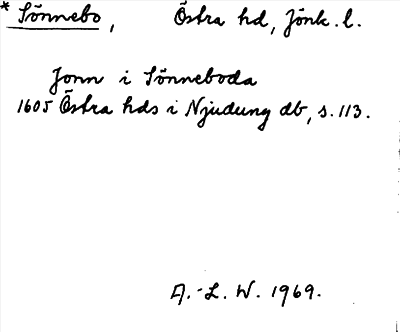 * Sönnebo, Östra hd, Jönk. l.
Jonn i Sönneboda
1605 Östra hds i Njudung db, s. 113.
A.-L. W. 1969.